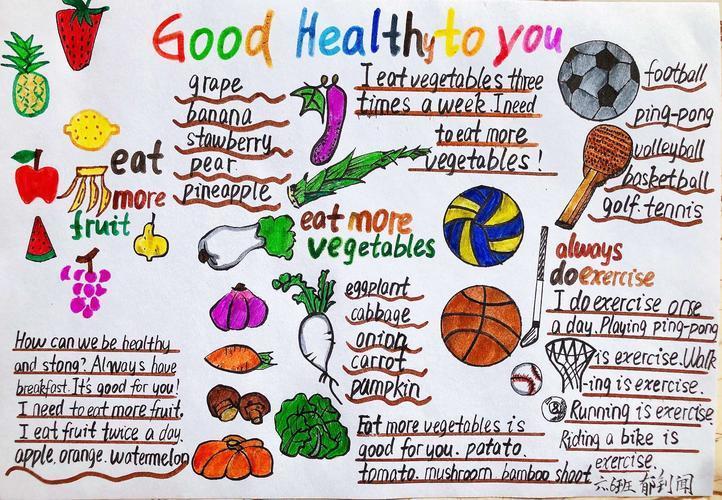 Good Healthy to you
grape
banana
stawberry
pear
pineapple
eat
more
fruit
I eat vegetables three
times a week. I need
to eat more
vegetables!
eat more
vegetables
eggplant
cabbage
onion
carrot
pumpkin
Eat more vegetables is
good for you. patato.
tomato. mushroom bamboo shoot
football
ping-pong
volleyball
basketball
golf. tennis
always
do exercise
I do exercise orse
a day. Playing ping-pong
is exercise. Walk
-ing is exercise.
Running is exercise
Riding a bike is
exercise.
How can we be healthy
and stong? Always have
breakfast. It's good for you!
I need to eat more fruit.
I eat fruit twice a day.
apple. orange. watermelon